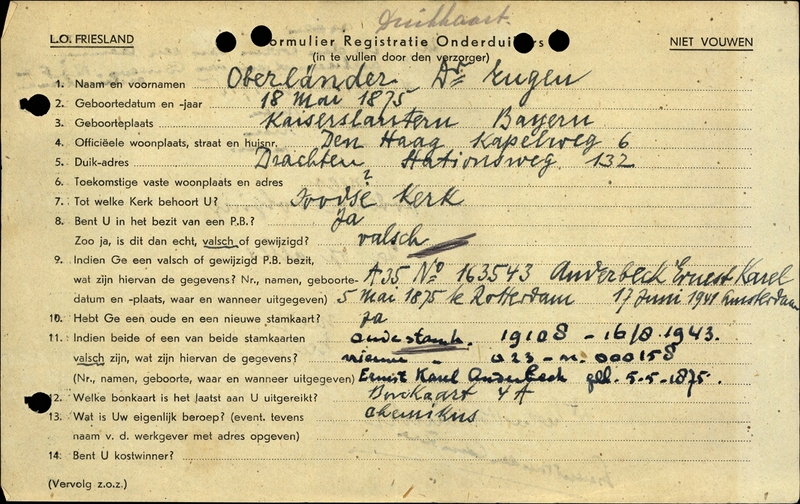 Duikkaart.
L.O. FRIESLAND
Formulier Registratie Onderduikers
NIET VOUWEN
(in te vullen door den verzorger)
1. Naam en voornamen Oberländer Dr Eugen
2. Geboortedatum en -jaar 18 Mai 1875
3. Geboorteplaats Kaiserslautern Bayern
4. Officiëele woonplaats, straat en huisnr. Den Haag Kapelweg 6
5. Duik-adres Drachten Stationsweg 132
6. Toekomstige vaste woonplaats en adres ?
7. Tot welke Kerk behoort U? Joodse Kerk
8. Bent U in het bezit van een P.B.? Ja
Zoo ja, is dit dan echt, valsch of gewijzigd? valsch
9. Indien Ge een valsch of gewijzigd P.B. bezit,
wat zijn hiervan de gegevens? Nr., namen, geboorte- A 35 No 163543 Anderbeck Ernest Karel
datum en -plaats, waar en wanneer uitgegeven) 5 Mai 1875 te Rotterdam 17 Juni 1941 Amsterdam
10. Hebt Ge een oude en een nieuwe stamkaart? ja
11. Indien beide of een van beide stamkaarten oude stamk. 19108 - 16/8 1943.
valsch zijn, wat zijn hiervan de gegevens? nieuwe " 023 - n. 000158
(Nr., namen, geboorte, waar en wanneer uitgegeven) Ernst Karel Anderbeck geb. 5-5-1875.
12. Welke bonkaart is het laatst aan U uitgereikt? Bonkaart 4 A
13. Wat is Uw eigenlijk beroep? (event. tevens chemikus
naam v. d. werkgever met adres opgeven)
14. Bent U kostwinner?
(Vervolg z.o.z.)